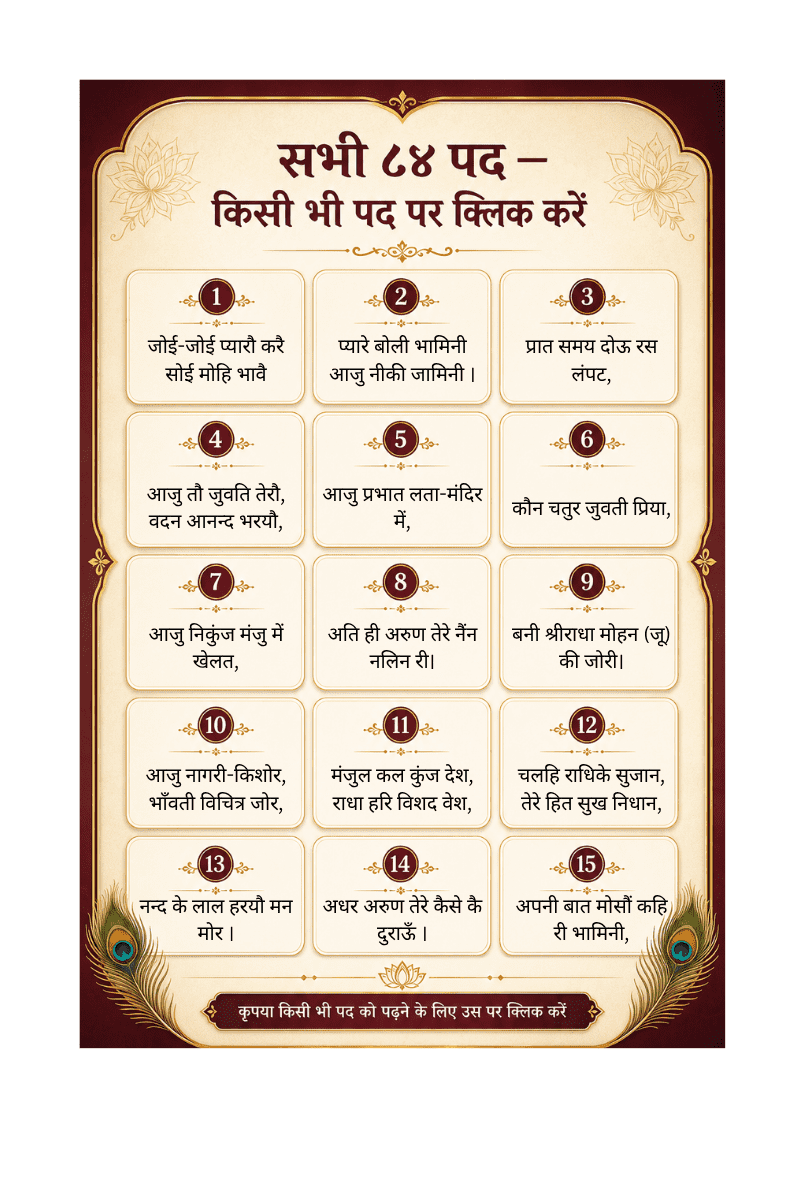 सभी ८४ पद –
किसी भी पद पर क्लिक करें
1
जोई-जोई प्यारौ करै
सोई मोहि भावै
2
प्यारे बोली भामिनी
आजु नीकी जामिनी ।
3
प्रात समय दोऊ रस
लंपट,
4
आजु तौ जुवति तेरौ,
वदन आनन्द भरयौ,
5
आजु प्रभात लता-मंदिर
में,
6
कौन चतुर जुवती प्रिया,
7
आजु निकुंज मंजु में
खेलत,
8
अति ही अरुण तेरे नैंन
नलिन री।
9
बनी श्रीराधा मोहन (जू)
की जोरी।
10
आजु नागरी-किशोर,
भाँवती विचित्र जोर,
11
मंजुल कल कुंज देश,
राधा हरि विशद वेश,
12
चलहि राधिके सुजान,
तेरे हित सुख निधान,
13
नन्द के लाल हरयौ मन
मोर ।
14
अधर अरुण तेरे कैसे कै
दुराऊँ ।
15
अपनी बात मोसौं कहि
री भामिनी,
कृपया किसी भी पद को पढ़ने के लिए उस पर क्लिक करें